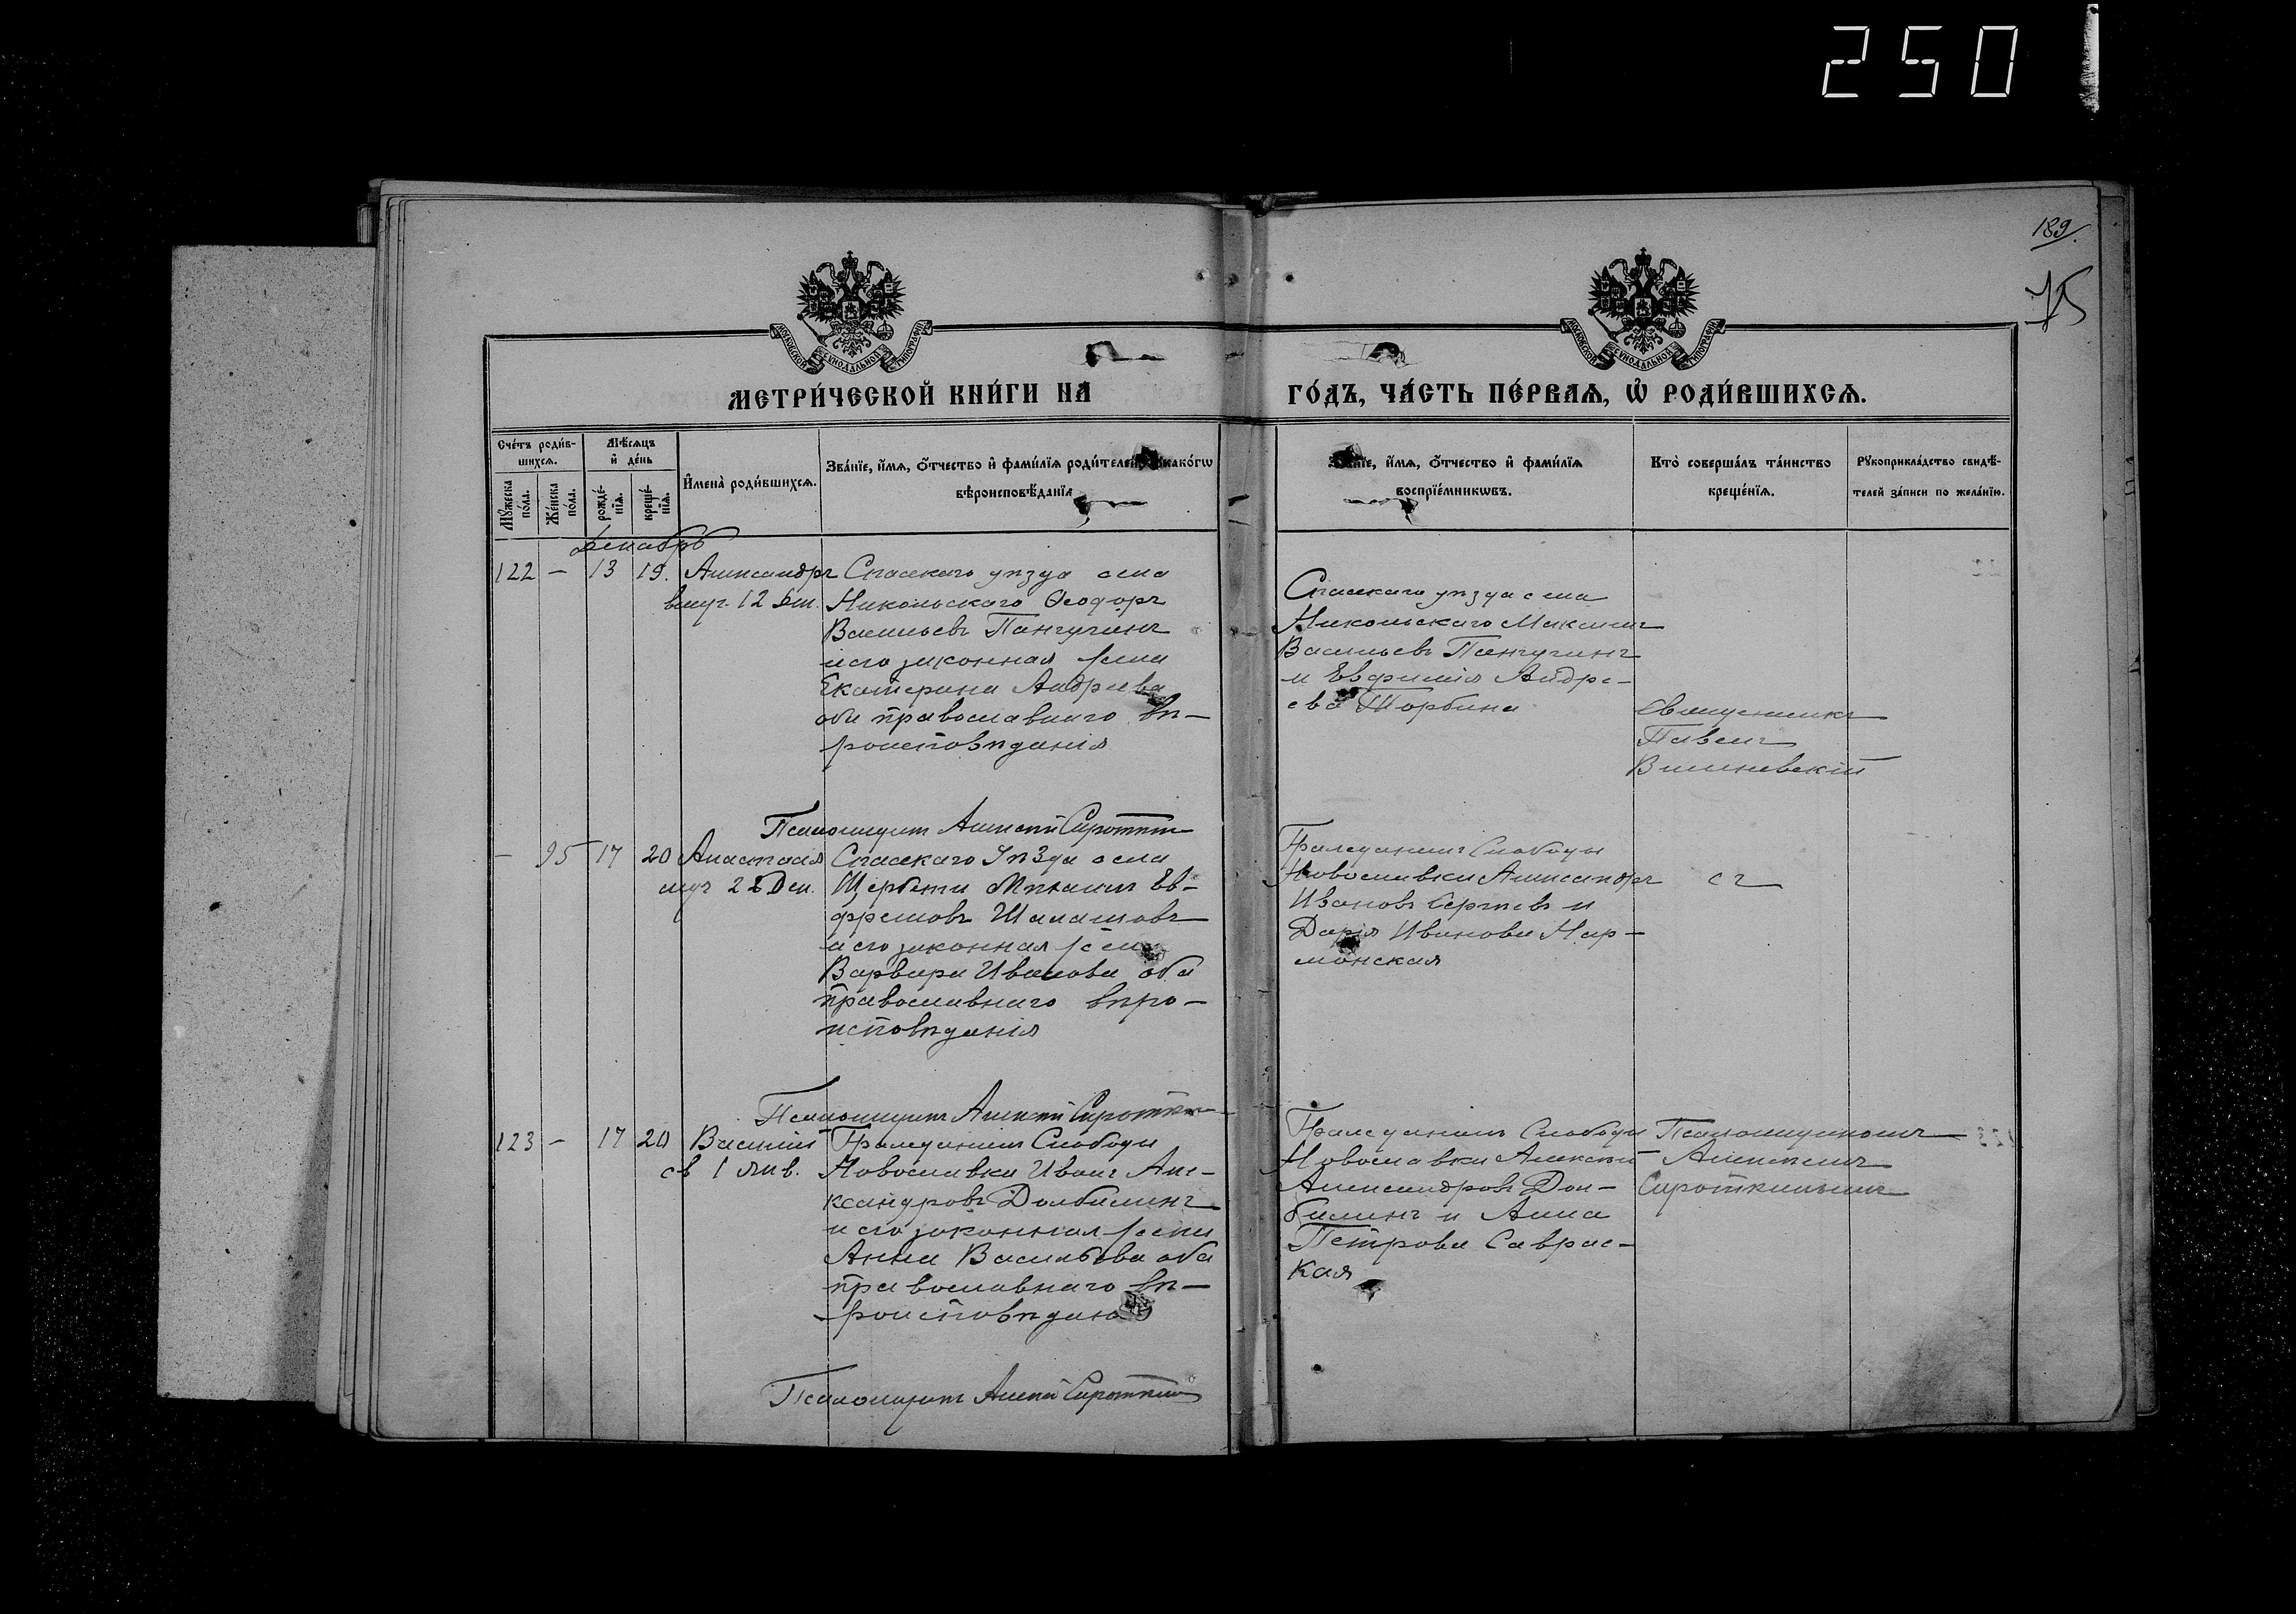 250
189.
75
МОСКОВСКОЙ СѴНОДАЛЬНОЙ ТИПОГРАФІИ
МОСКОВСКОЙ СѴНОДАЛЬНОЙ ТИПОГРАФІИ
МЕТРИ́ЧЕСКОЙ КНИ́ГИ НА ГО́ДЪ, ЧА́СТЬ ПЕ́РВАѦ, Ѿ РОДИ́ВШИХСѦ.
Сче́тъ роди́в-
шихсѧ.
Мѣ́сѧцъ
и҆ де́нь
Мꙋ́жеска по́ла.
Же́нска по́ла.
рожде́-
нїѧ.
креще́-
нїѧ.
И҆мена̀ роди́вшихсѧ.
Зва́нїе, и҆́мѧ, ѻ҆́тчество и҆ фами́лїѧ роди́телей, како́гѡ
вѣроисповѣ́данїѧ
Зва́нїе, и҆́мѧ, ѻ҆́тчество и҆ фами́лїѧ
воспрїе́мникѡвъ.
Кто̀ соверша́лъ та́инство
креще́нїѧ.
Рꙋкоприкла́дство свидѣ́-
телей за́писи по жела́нїю.
Декабрь
122 — 13 19. Александръ Спасскаго уѣзда села
12 Дек. Никольскаго Ѳеодоръ
Васильевъ Пангучинъ
и его законная жена
Екатерина Андреева
оба православнаго вѣ—
роисповѣданія
Спасскаго уѣзда села
Никольскаго Максимъ
Васильевъ Пангучинъ
и Евфимія Андре—
ева Шорбина
Священникъ
Павелъ
Вишневскій
Псаломщикъ Алексѣй Сироткин
— 95 17 20 Анастасія Спасскаго Уѣзда села
муч 22 Дек. Щербети Ев—
фремовъ Шалашовъ
и его законная жена
Варвара Иванова оба
православнаго вѣро—
исповѣданія
Гражданинъ Слободы
Новославки Александръ
Ивановъ Сергѣевъ и
Дарія Иванова Нар—
монская
Псаломщикъ Алексѣй Сироткин
123 — 17 20 Василій Гражданинъ Слободы
св 1 Янв. Новославки Иванъ Але—
ксандровъ Долбилинъ
и его законная жена
Анна Васильева оба
православнаго вѣ—
роисповѣданія
Гражданинъ Слободы
Новославки Алексѣй
Александровъ Дол—
билинъ и Анна
Петрова Саврас—
кая
Псаломщикомъ
Алексѣемъ
Сироткинымъ
Псаломщикъ Алексѣй Сироткин